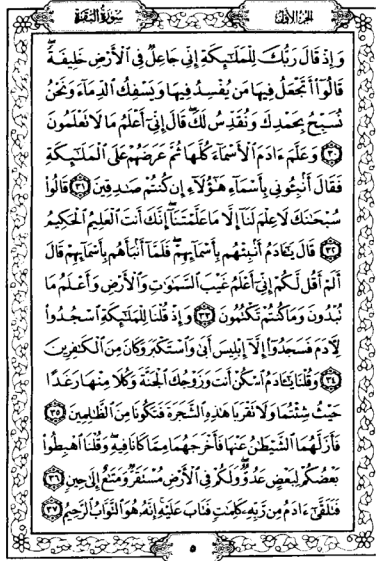 سورة البقرة
الجزء الأول
وَإِذْ قَالَ رَبُّكَ لِلْمَلَـٰٓئِكَةِ إِنِّى جَاعِلٌ فِى ٱلْأَرْضِ خَلِيفَةً ۖ
قَالُوٓا۟ أَتَجْعَلُ فِيهَا مَن يُفْسِدُ فِيهَا وَيَسْفِكُ ٱلدِّمَآءَ وَنَحْنُ
نُسَبِّحُ بِحَمْدِكَ وَنُقَدِّسُ لَكَ ۖ قَالَ إِنِّىٓ أَعْلَمُ مَا لَا تَعْلَمُونَ
٣٠ وَعَلَّمَ ءَادَمَ ٱلْأَسْمَآءَ كُلَّهَا ثُمَّ عَرَضَهُمْ عَلَى ٱلْمَلَـٰٓئِكَةِ
فَقَالَ أَنۢبِـُٔونِى بِأَسْمَآءِ هَـٰٓؤُلَآءِ إِن كُنتُمْ صَـٰدِقِينَ ٣١ قَالُوا۟
سُبْحَـٰنَكَ لَا عِلْمَ لَنَآ إِلَّا مَا عَلَّمْتَنَآ ۖ إِنَّكَ أَنتَ ٱلْعَلِيمُ ٱلْحَكِيمُ
٣٢ قَالَ يَـٰٓـَٔادَمُ أَنۢبِئْهُم بِأَسْمَآئِهِمْ ۖ فَلَمَّآ أَنۢبَأَهُم بِأَسْمَآئِهِمْ قَالَ
أَلَمْ أَقُل لَّكُمْ إِنِّىٓ أَعْلَمُ غَيْبَ ٱلسَّمَـٰوَٰتِ وَٱلْأَرْضِ وَأَعْلَمُ مَا
تُبْدُونَ وَمَا كُنتُمْ تَكْتُمُونَ ٣٣ وَإِذْ قُلْنَا لِلْمَلَـٰٓئِكَةِ ٱسْجُدُوا۟
لِـَٔادَمَ فَسَجَدُوٓا۟ إِلَّآ إِبْلِيسَ أَبَىٰ وَٱسْتَكْبَرَ وَكَانَ مِنَ ٱلْكَـٰفِرِينَ
٣٤ وَقُلْنَا يَـٰٓـَٔادَمُ ٱسْكُنْ أَنتَ وَزَوْجُكَ ٱلْجَنَّةَ وَكُلَا مِنْهَا رَغَدًا
حَيْثُ شِئْتُمَا وَلَا تَقْرَبَا هَـٰذِهِ ٱلشَّجَرَةَ فَتَكُونَا مِنَ ٱلظَّـٰلِمِينَ ٣٥
فَأَزَلَّهُمَا ٱلشَّيْطَـٰنُ عَنْهَا فَأَخْرَجَهُمَا مِمَّا كَانَا فِيهِ ۖ وَقُلْنَا ٱهْبِطُوا۟
بَعْضُكُمْ لِبَعْضٍ عَدُوٌّ ۖ وَلَكُمْ فِى ٱلْأَرْضِ مُسْتَقَرٌّ وَمَتَـٰعٌ إِلَىٰ حِينٍ ٣٦
فَتَلَقَّىٰٓ ءَادَمُ مِن رَّبِّهِۦ كَلِمَـٰتٍ فَتَابَ عَلَيْهِ ۚ إِنَّهُۥ هُوَ ٱلتَّوَّابُ ٱلرَّحِيمُ ٣٧
٥